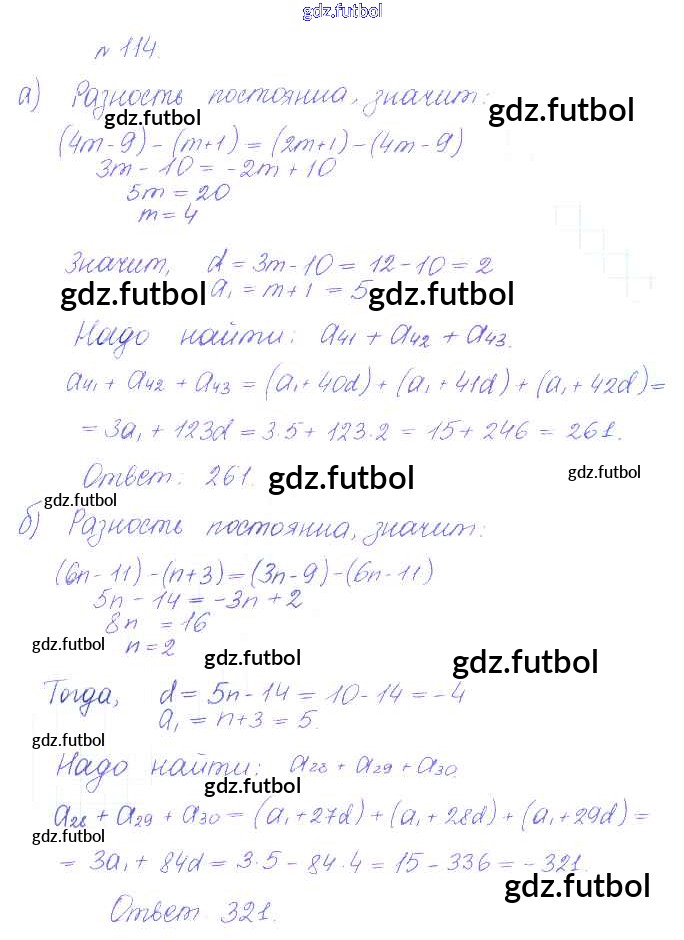 gdz.futbol
n 114.
а) Разность постоянна, значит:
gdz.futbol
gdz.futbol
(4m-9)-(m+1)=(2m+1)-(4m-9)
3m-10=-2m+10
5m=20
m=4
Значит, d=3m-10=12-10=2
a₁=m+1=5
gdz.futbol gdz.futbol
Надо найти: a₄₁+a₄₂+a₄₃.
a₄₁+a₄₂+a₄₃=(a₁+40d)+(a₁+41d)+(a₁+42d)=
=3a₁+123d=3·5+123·2=15+246=261.
Ответ: 261.
gdz.futbol gdz.futbol
gdz.futbol
б) Разность постоянна, значит:
(6n-11)-(n+3)=(3n-9)-(6n-11)
5n-14=-3n+2
8n=16
n=2
gdz.futbol gdz.futbol gdz.futbol
Тогда, d=5n-14=10-14=-4
a₁=n+3=5.
gdz.futbol
Надо найти: a₂₈+a₂₉+a₃₀.
gdz.futbol
a₂₈+a₂₉+a₃₀=(a₁+27d)+(a₁+28d)+(a₁+29d)=
gdz.futbol
=3a₁+84d=3·5-84·4=15-336=-321.
gdz.futbol
Ответ 321.